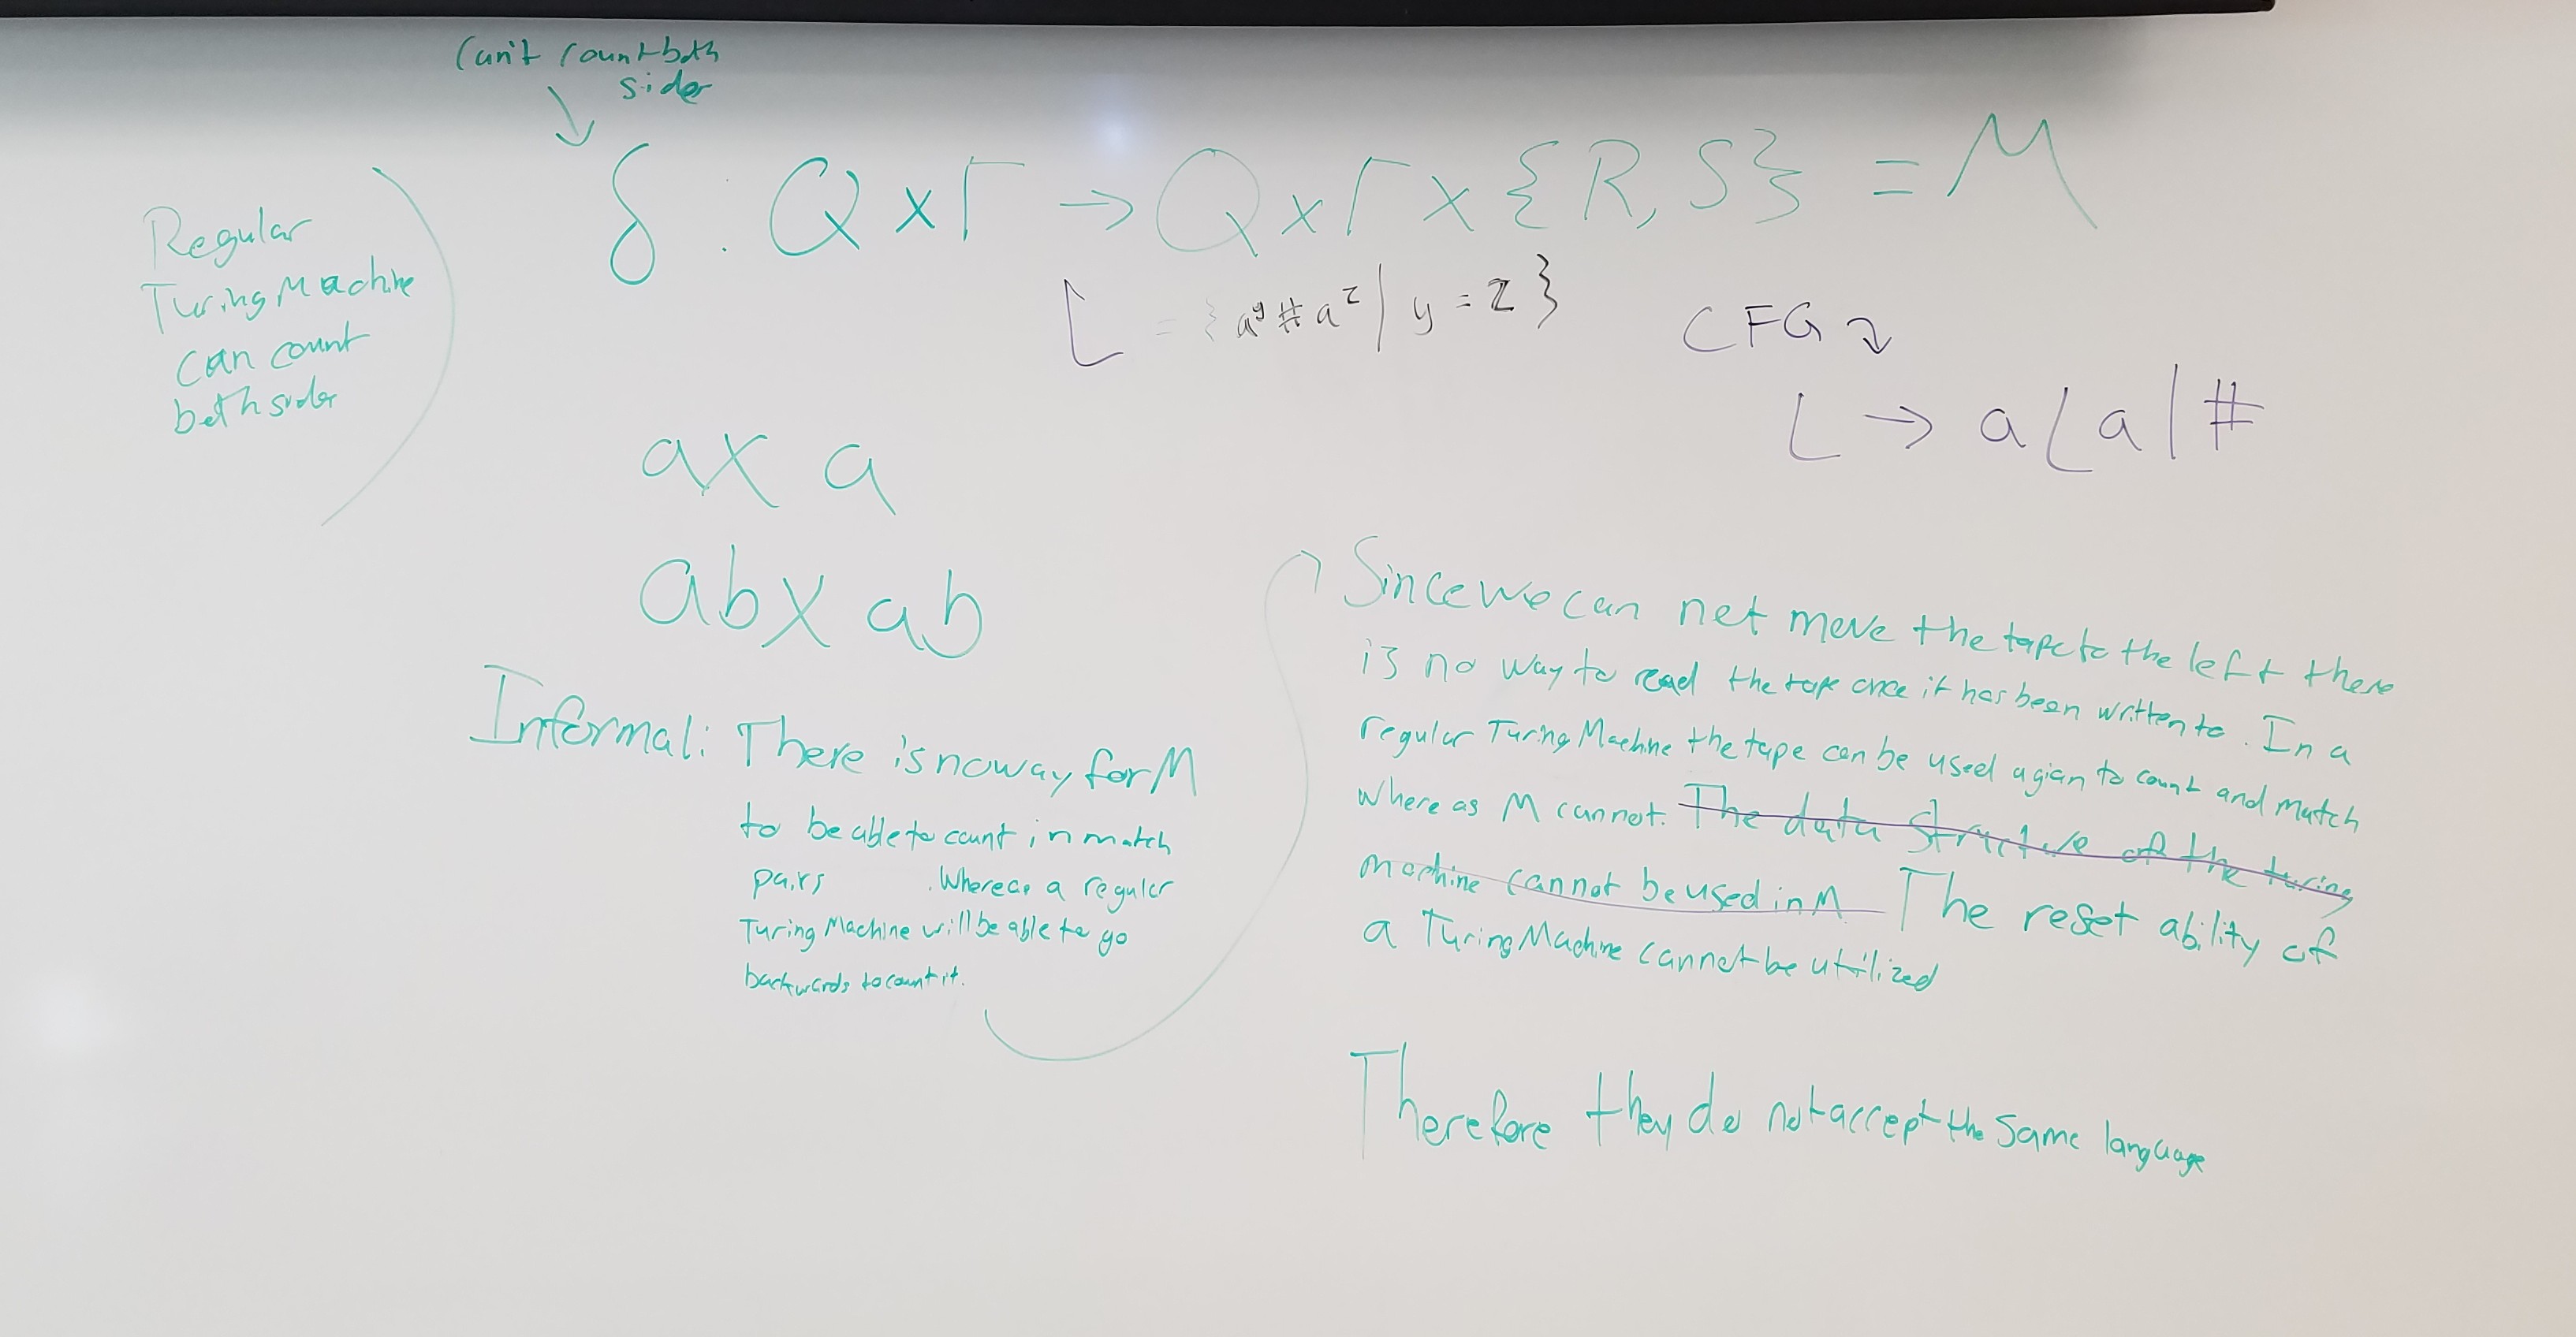 Can't count both
sides
δ : Q x Γ → Q x Γ x {R, S} = M
Regular
Turing Machine
can count
both sides
L = {a^y # a^z | y = z}
CFG ↴
L → a L a | #
a x a
ab x ab
Informal: There is no way for M
to be able to count in match
pairs . Whereas a regular
Turing Machine will be able to go
backwards to count it.
Since we can not move the tape to the left there
is no way to read the tape once it has been written to. In a
regular Turing Machine the tape can be used agian to count and match
where as M cannot. The data structure of the turing
machine cannot be used in M The reset ability of
a Turing Machine cannot be utilized
Therefore they do not accept the same language